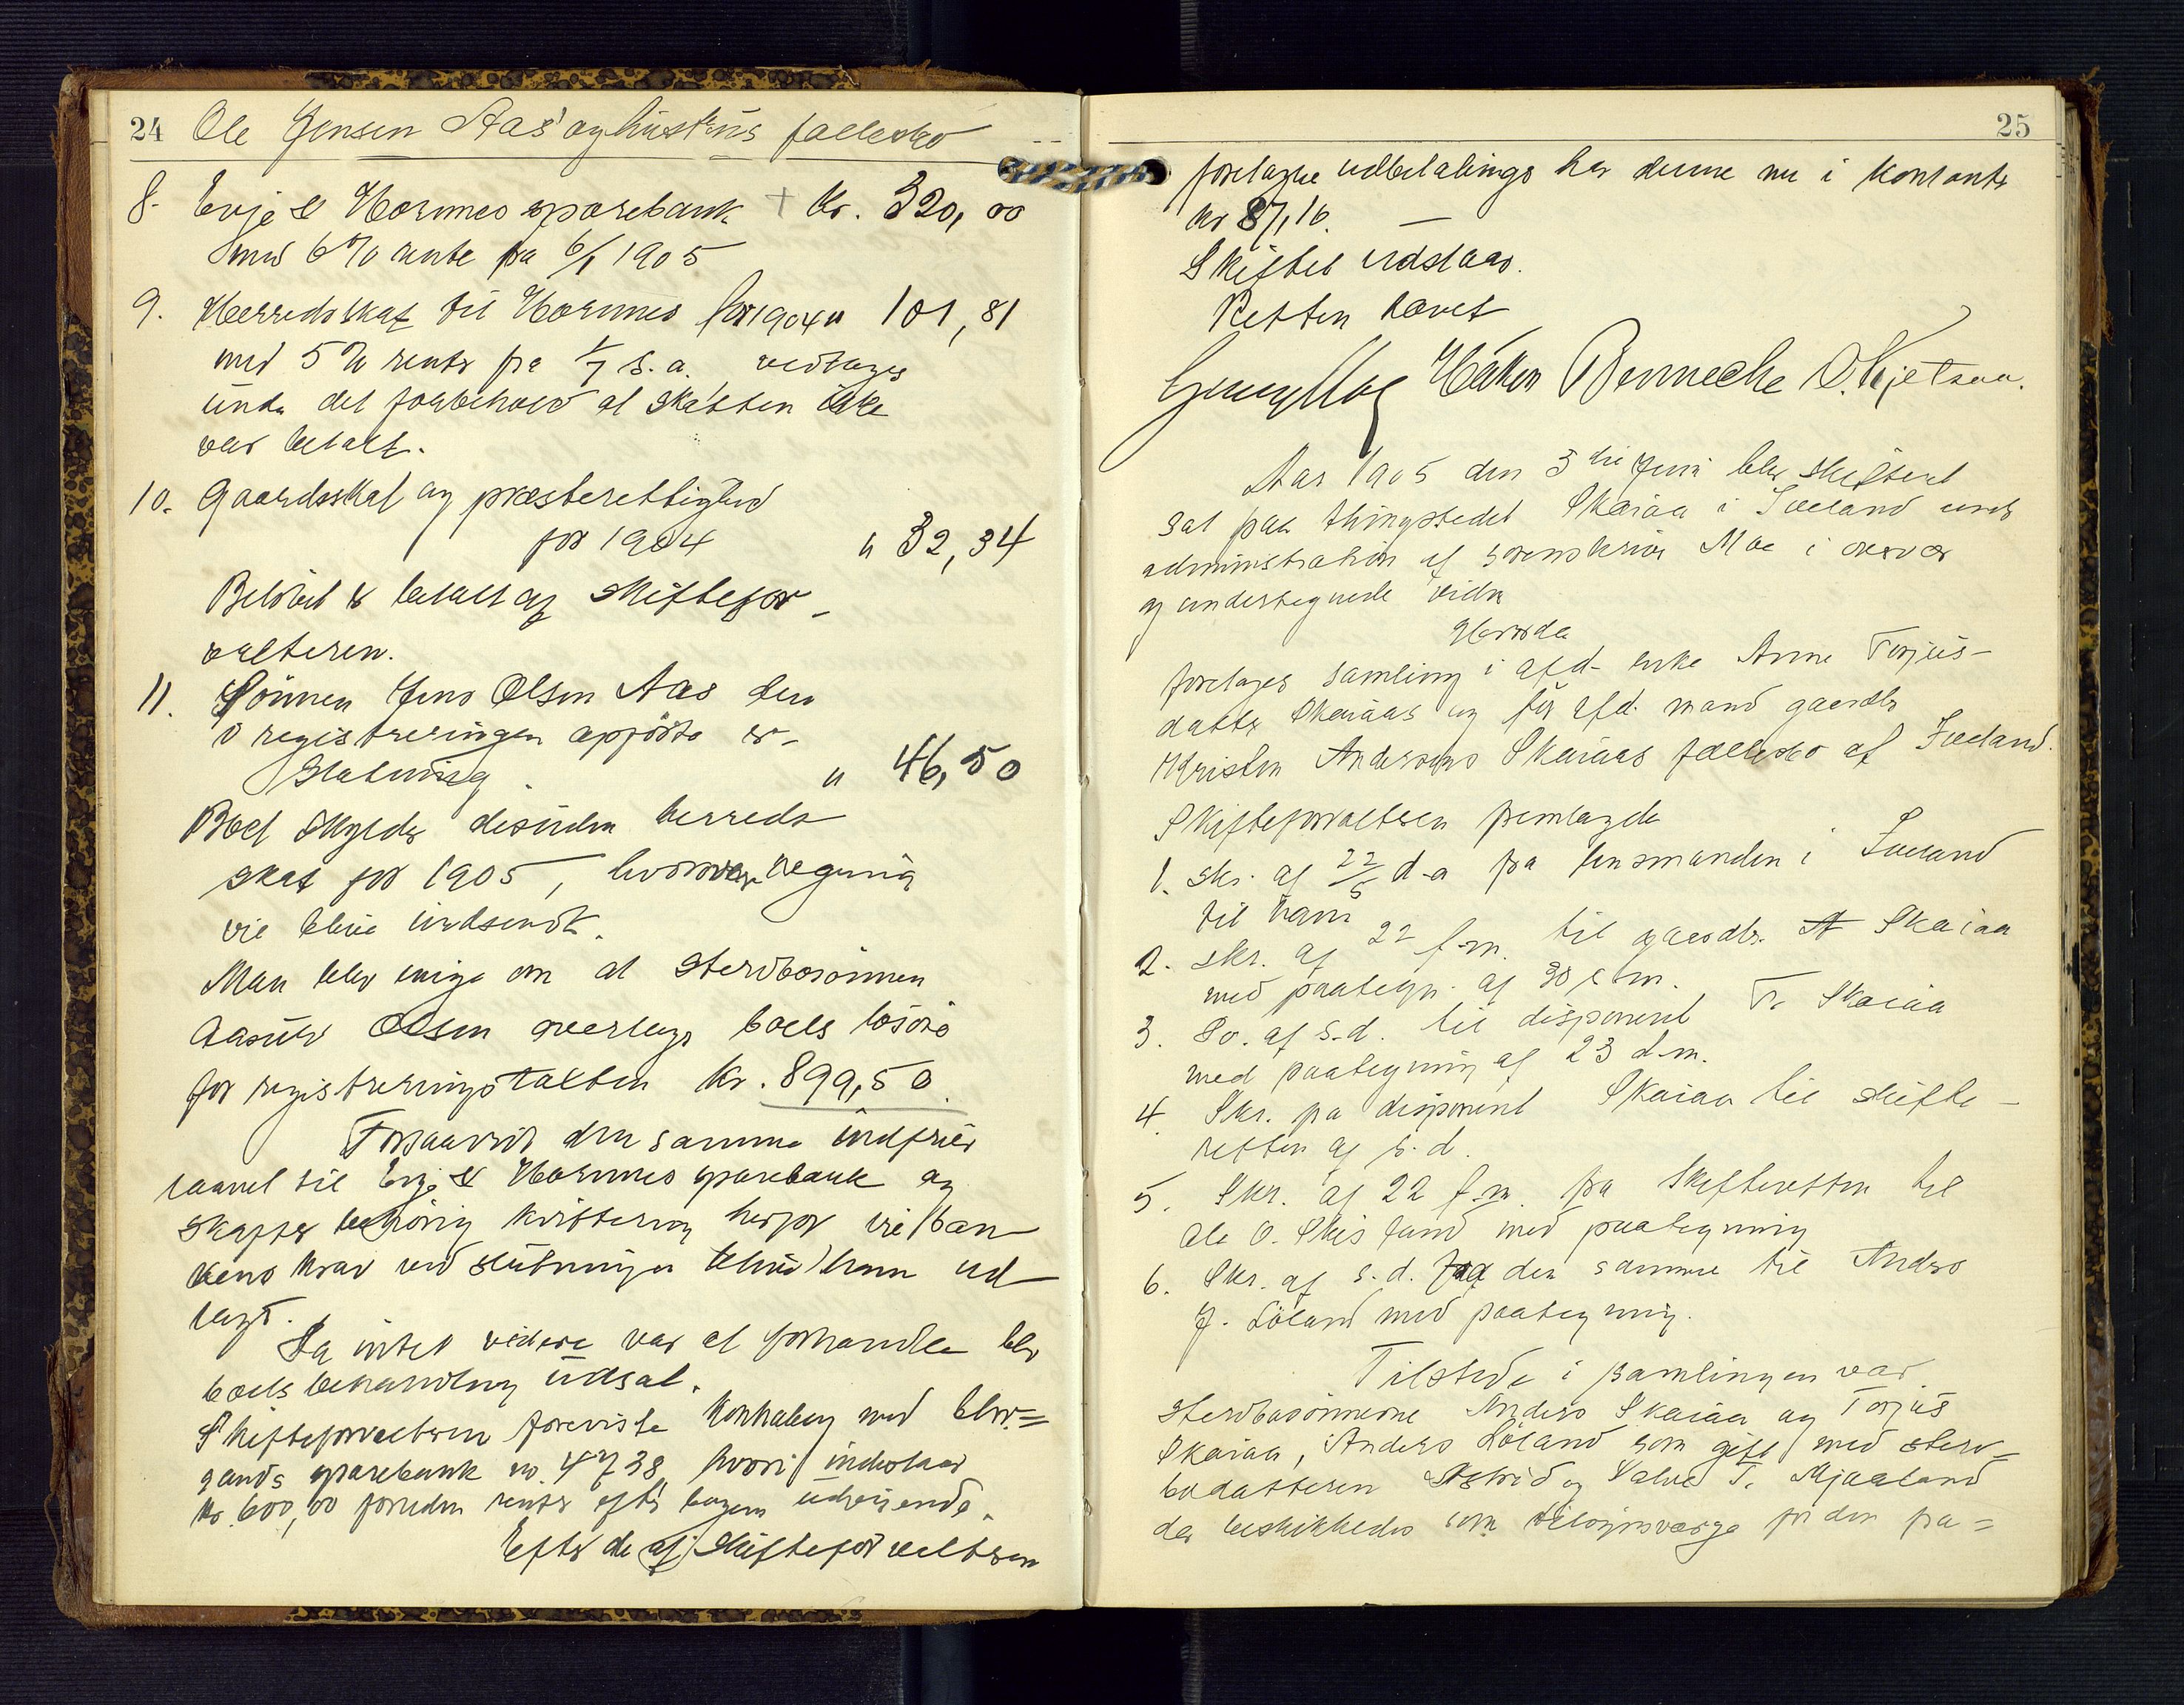 24 Ole Jensen Aas' og hustrus fællesbo
8. Evje & Hornnes sparebank + kr. 320,00
med 6 % rente fra 6/1 1905
9. Herredsskat til Hornnes for 1904 " 101,81
med 5 % rente fra 1/7 s. a. vedtages
under det forbehold at skatten ikke
var betalt.
10. Gaardsskat og præsterettighed
for 1904 " 32,34
Beløbet er betalt af skiftefor-
valteren.
11. Sønnen Jens Olsen Aas den
i registreringen opførte er-
statning " 46,50
Boet skylder desuden herreds
skat for 1905, hvorover regning
vil blive indsendt.
Man blev enige om at stervbosønnen
Aasulv Olsen overtager boets løsøre
for registreringstakten kr. 899,50.
Forsaavidt den samme indfrier
laanet til Evje & Hornnes sparebank og
skaffer behørig kvittering herfor vil ban
kens krav ved slutningen blive ham ud
lagt.
Da intet videre var at forhandle blev
boets behandling udsat.
Skifteforvalteren foreviste kontrabog med
sparebank no. 4738 hvori indestaar
kr. 600,00 foruden renter efter bogens udvisende.
Efter de af skifteforvalteren
25
foretagne udbetalinger har denne nu i kontanter
kr 87,16. —
Skiftet udstaar.
Retten hævet
Håkon Benneche O. Kjetsaa.
Aar 1905 den 3die Juni blev skifteret
sat paa thingstedet Skaiaa i Iveland under
administration af sorenskriver Moe i overvær
af undertegnede vidner
Hvorda
foretages samling i afd. enke Anne Torjus-
datter Skaiaas og før afd. mand gaardbr
Kristen Andersens Skaiaas fællesbo af Iveland.
Skifteforvalteren fremlagde
1. skr. af 22/5 d. a fra lensmanden i Iveland
til ham
2. skr. af 22 f. m. til gaardbr. A Skaiaa
med paategn. af 30 f. m.
3. Do. af s. d. til disponent T. Skaiaa
med paategning af 23 d. m.
4. Skr. fra disponent Skaiaa til skifte-
retten af s. d.
5. Skr. af 22 f. m. fra skifteretten til
Ole O. med paategning
6. Skr. af s. d. fra den samme til Anders
J. Løland med paategning.
Tilstede i samlingen var
stervbosønnerne Anders Skaiaa og Torjus
Skaiaa, Anders Løland som gift med sterv-
bodatteren Astrid og Salve T.
der beskikkedes som tilsynsværge for den fra=